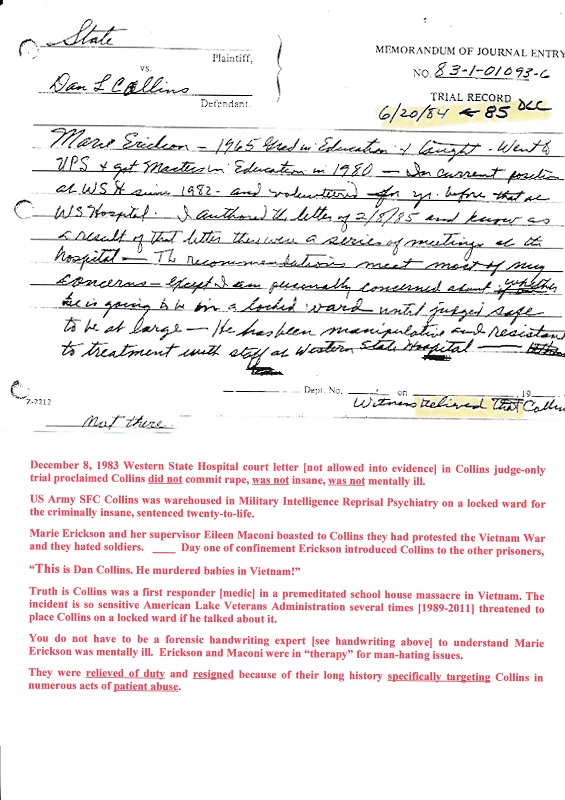 State
Plaintiff,
vs.
Dan L Collins
Defendant.
MEMORANDUM OF JOURNAL ENTRY
NO. 83-1-01093-6
TRIAL RECORD
6/20/84 ← 85 DCC
Marie Erickson – 1965 Grad in Education & taught. Went to
UPS & got Masters in Education in 1980 – In current position
at WSH since 1982 – and volunteered for yr. before that at
WS Hospital. I authored the letter of 2/8/85 and know as
a result of that letter there were a series of meetings at the
hospital – The recommendations meet most of my
concerns – Except I am personally concerned about whether
he is going to be in a locked ward until judged safe
to be at large – He has been manipulative and resistant
to treatment with staff at Western State Hospital –
Dept. No. on 19
Z-2212
Witness believed that Collin
not there
December 8, 1983 Western State Hospital court letter [not allowed into evidence] in Collins judge-only
trial proclaimed Collins did not commit rape, was not insane, was not mentally ill.
US Army SFC Collins was warehoused in Military Intelligence Reprisal Psychiatry on a locked ward for
the criminally insane, sentenced twenty-to-life.
Marie Erickson and her supervisor Eileen Maconi boasted to Collins they had protested the Vietnam War
and they hated soldiers. ____ Day one of confinement Erickson introduced Collins to the other prisoners,
“This is Dan Collins. He murdered babies in Vietnam!”
Truth is Collins was a first responder [medic] in a premeditated school house massacre in Vietnam. The
incident is so sensitive American Lake Veterans Administration several times [1989-2011] threatened to
place Collins on a locked ward if he talked about it.
You do not have to be a forensic handwriting expert [see handwriting above] to understand Marie
Erickson was mentally ill. Erickson and Maconi were in “therapy” for man-hating issues.
They were relieved of duty and resigned because of their long history specifically targeting Collins in
numerous acts of patient abuse.